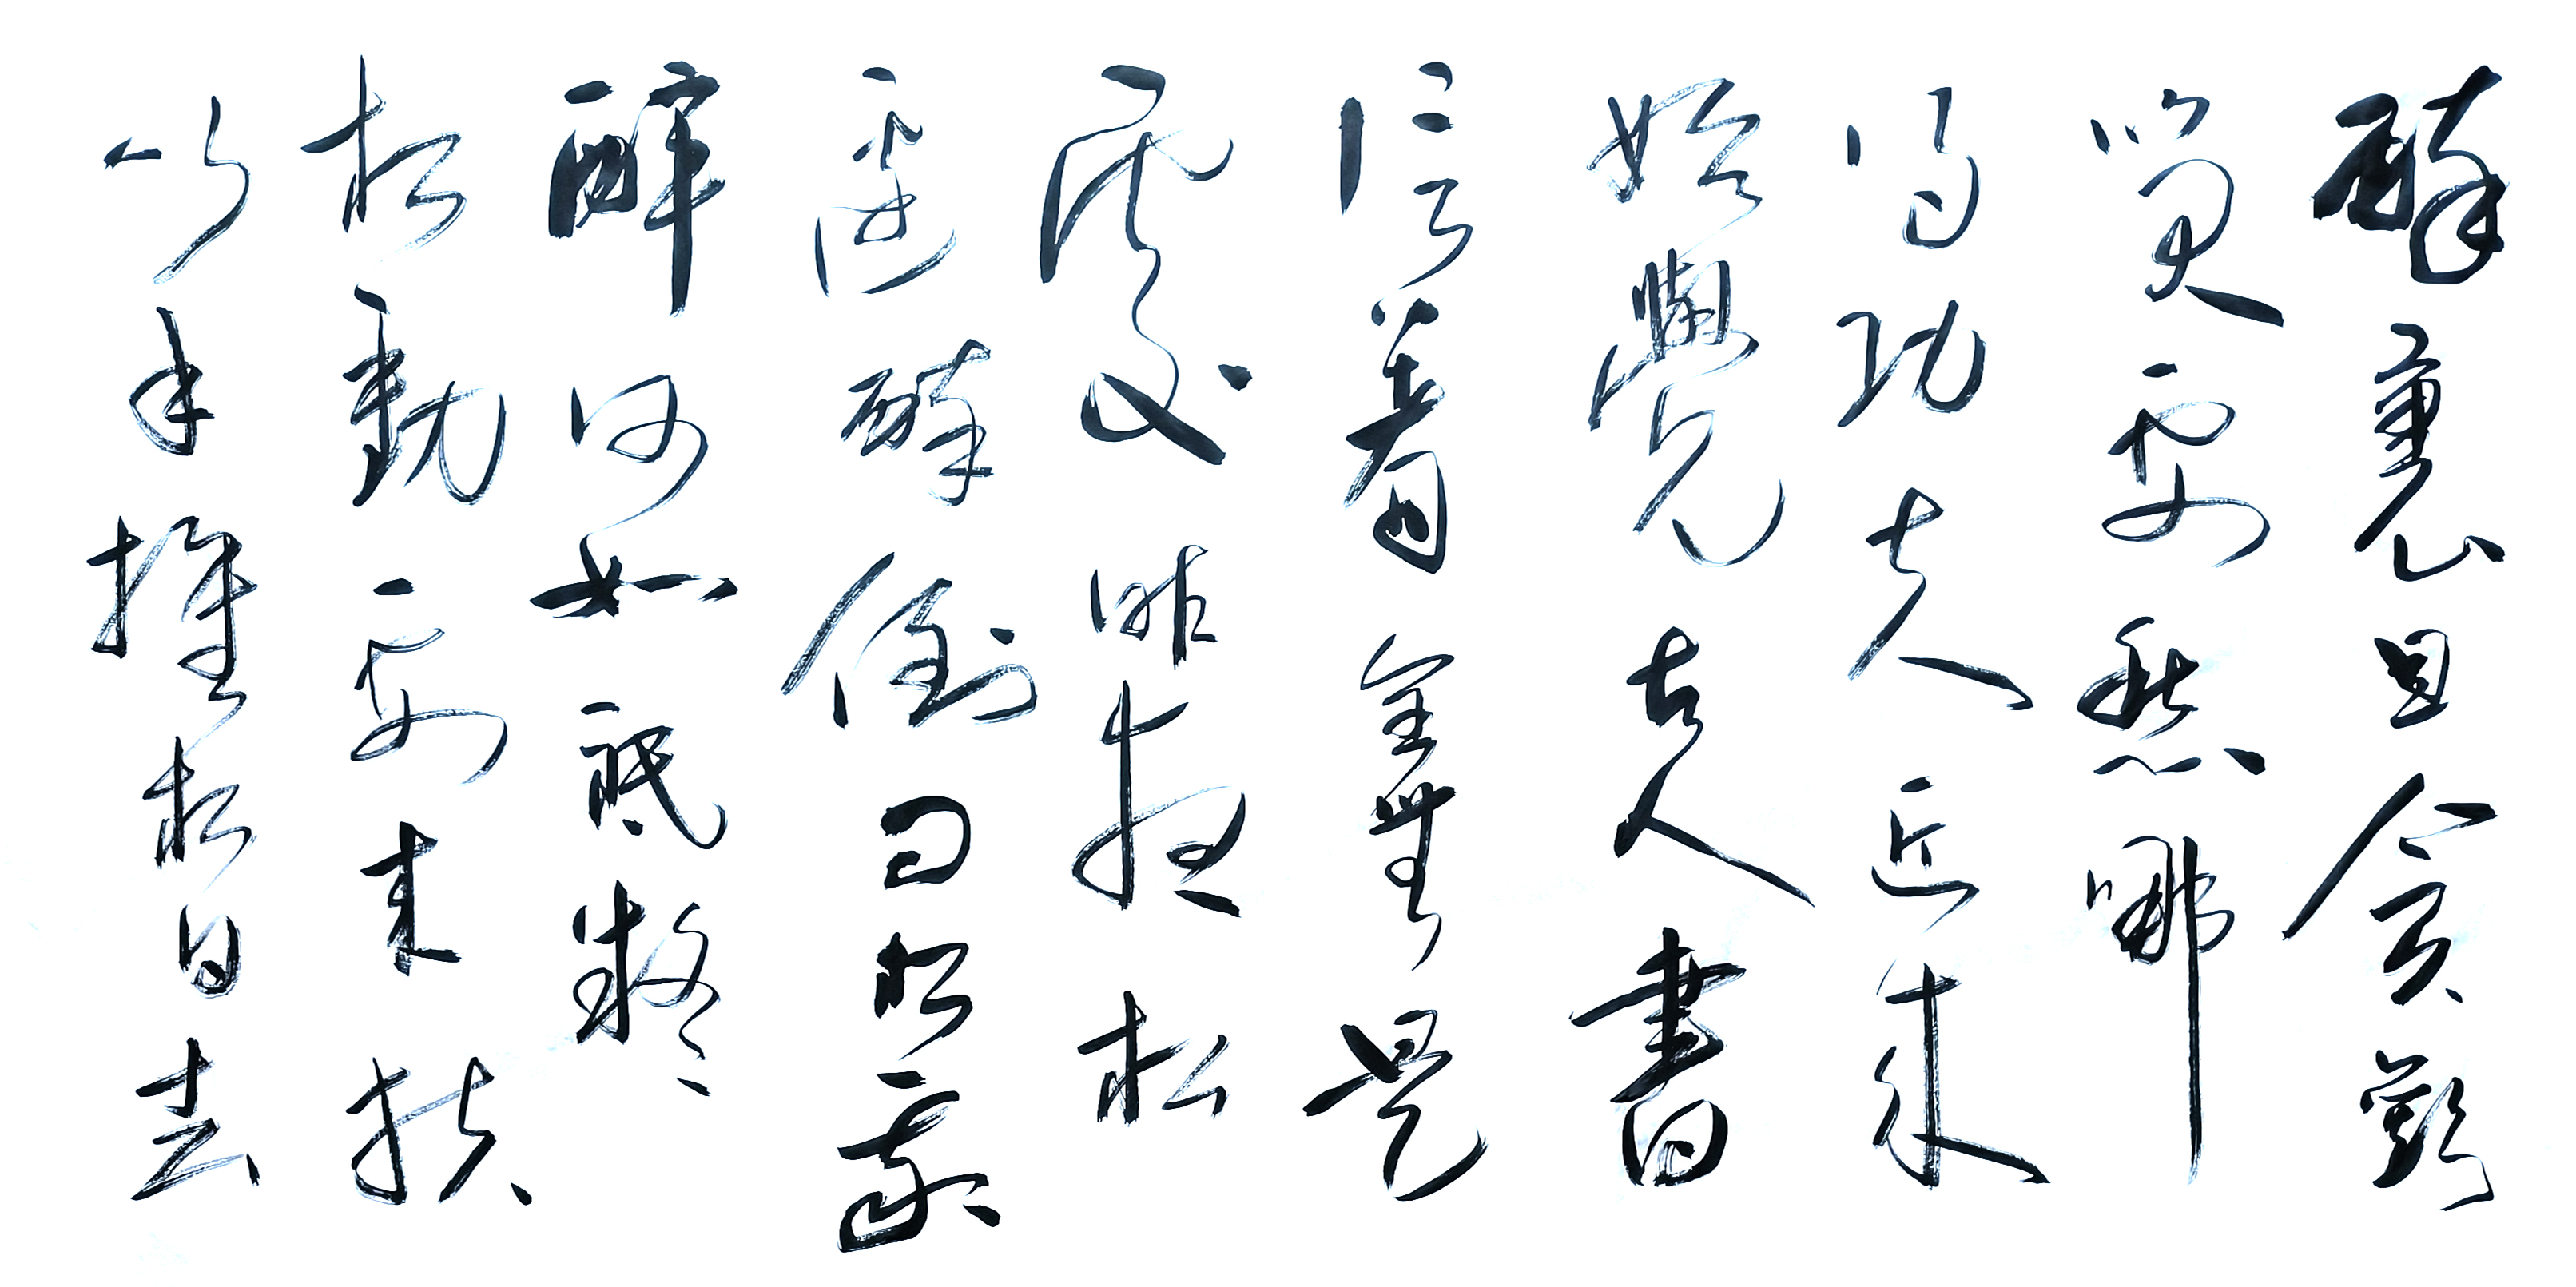 醉裏且貪歡
笑要愁哪
得功夫近来
始覺古人書
信着全無是
處昨夜松
邊醉倒问松我
醉何如祗疑
松動要来扶
以手推松曰去